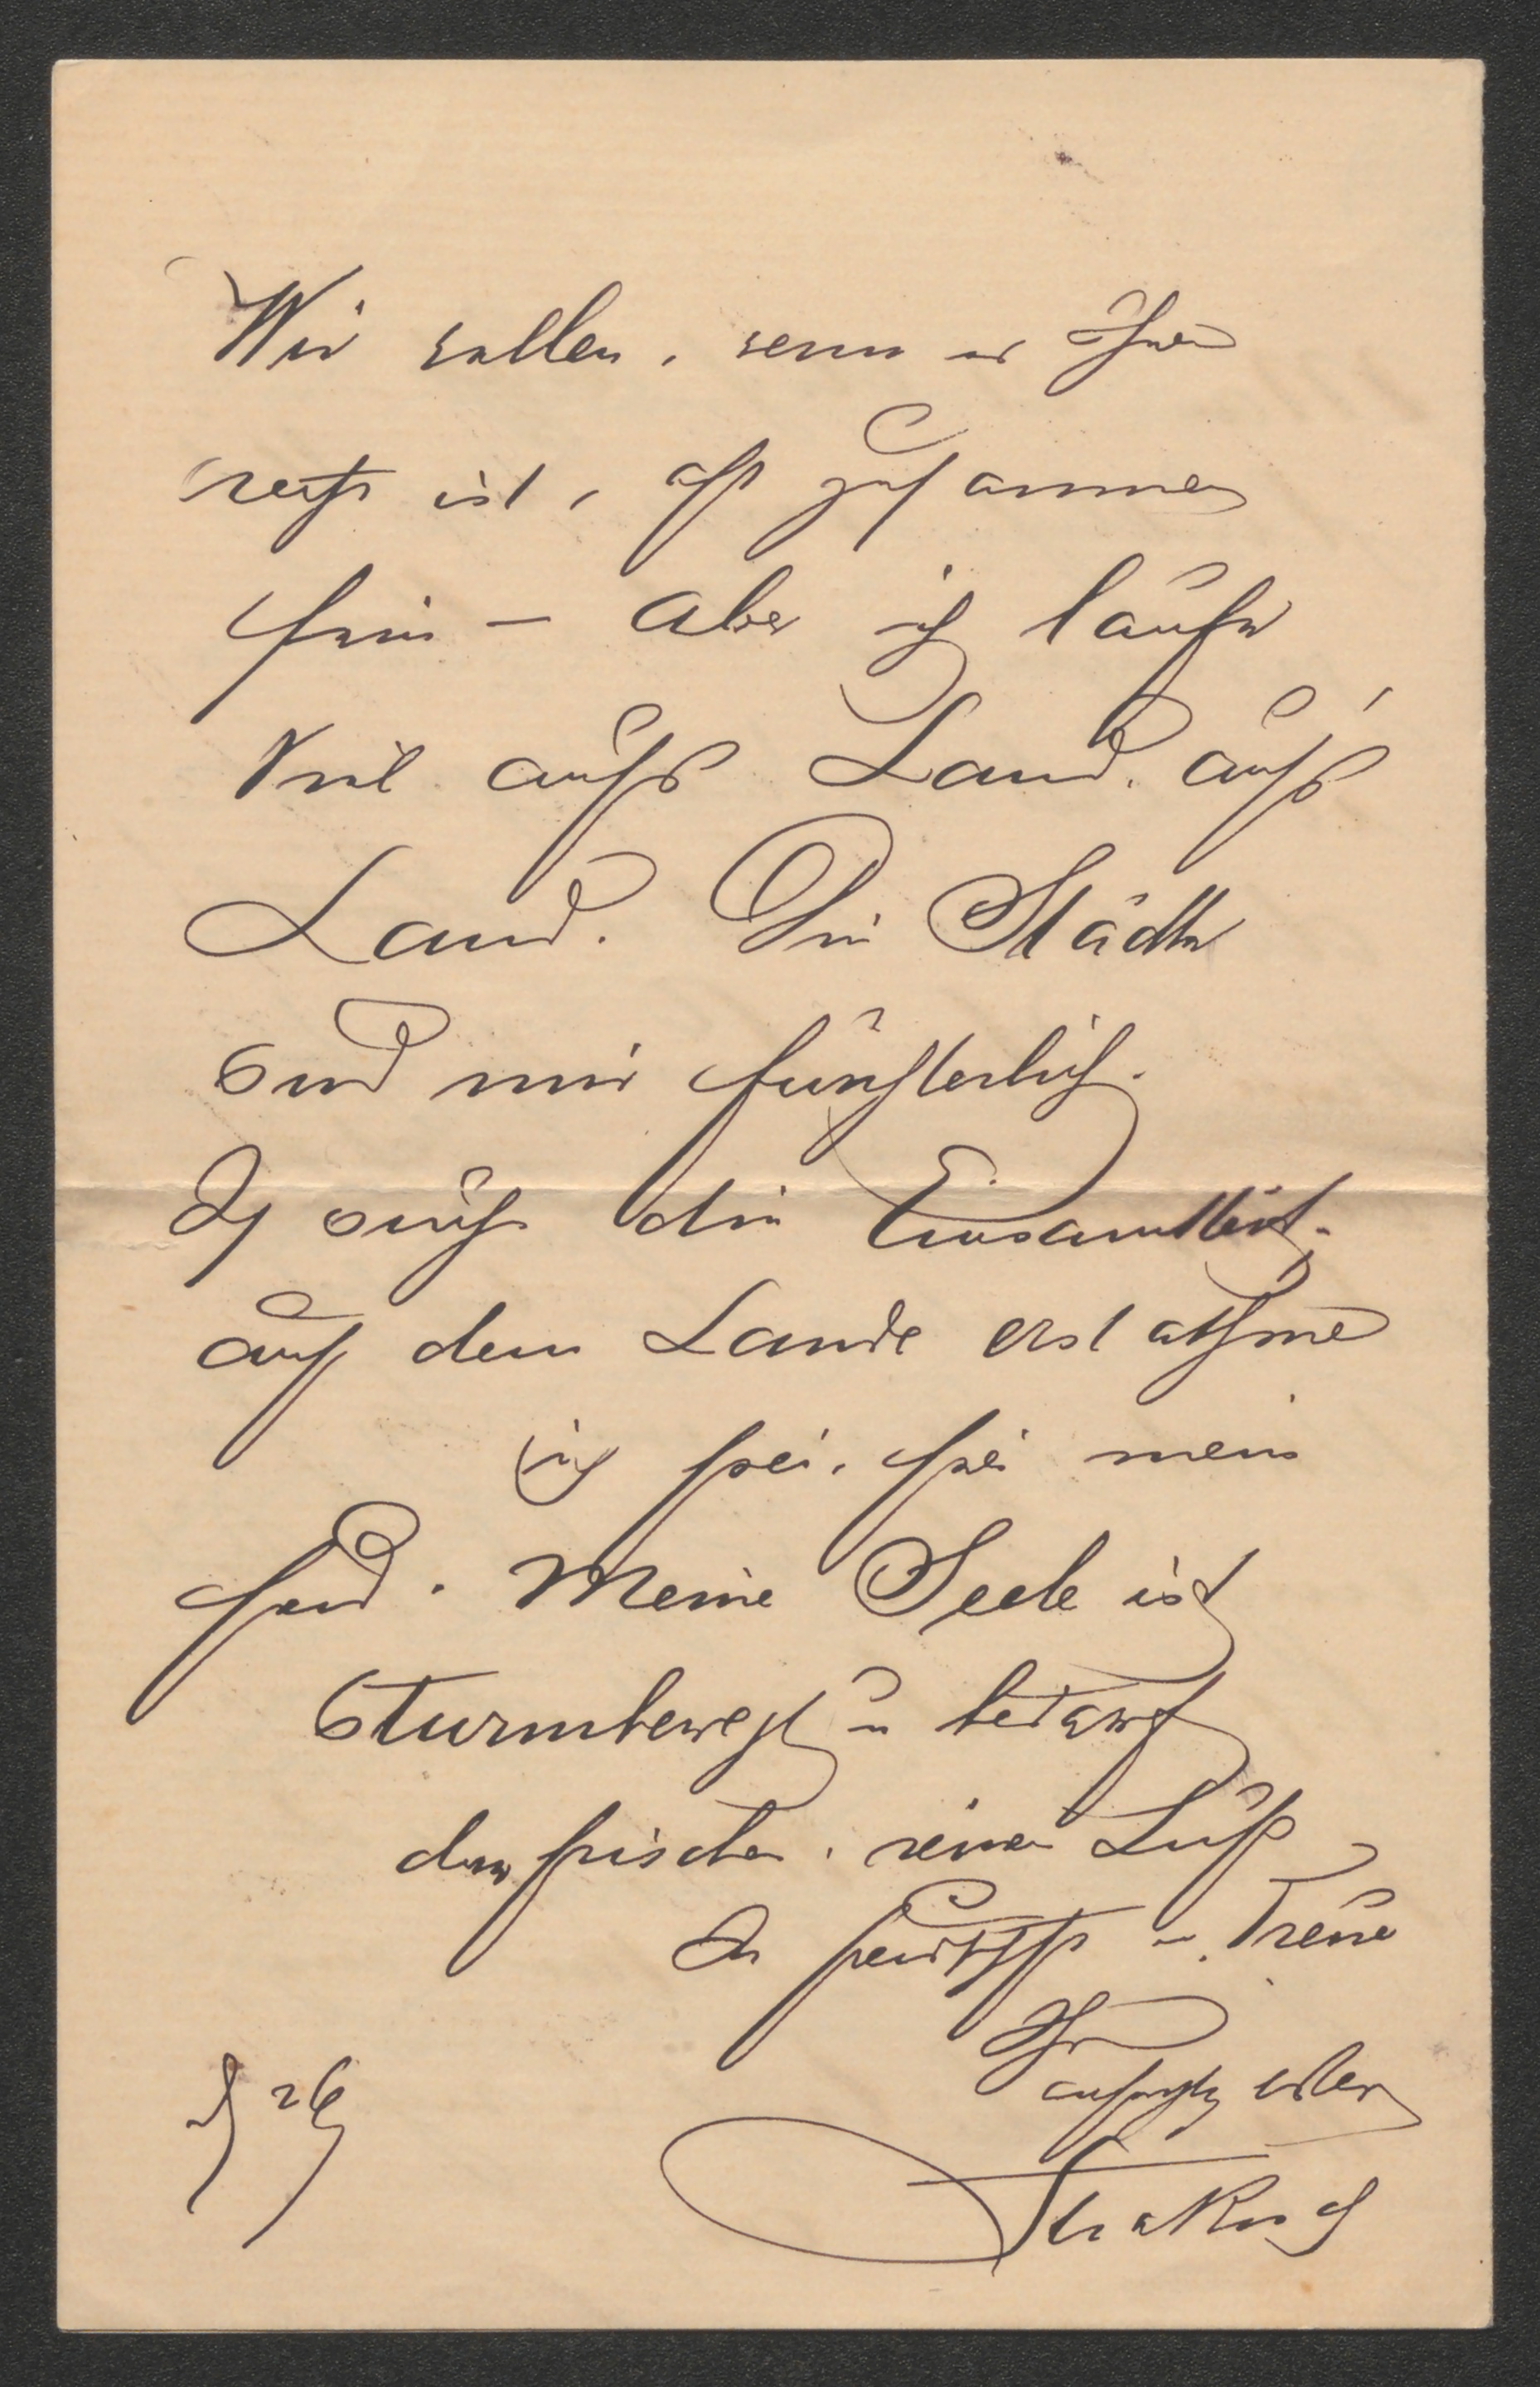 Wir wollen, wenn es Ihnen
recht ist, oft zusammen
sein – aber ich laufe
viel aufs Land, aufs
Land. Die Städte
sind mir fürchterlich.
Ich suche die Einsamkeit.
auf dem Lande erst athme
ich frei, frei mein
Meine Seele ist
sturmbewegt u bedarf
der frischen, reinen Luft
In Freundschaft u. Treue
Ihr
Strakosch
26